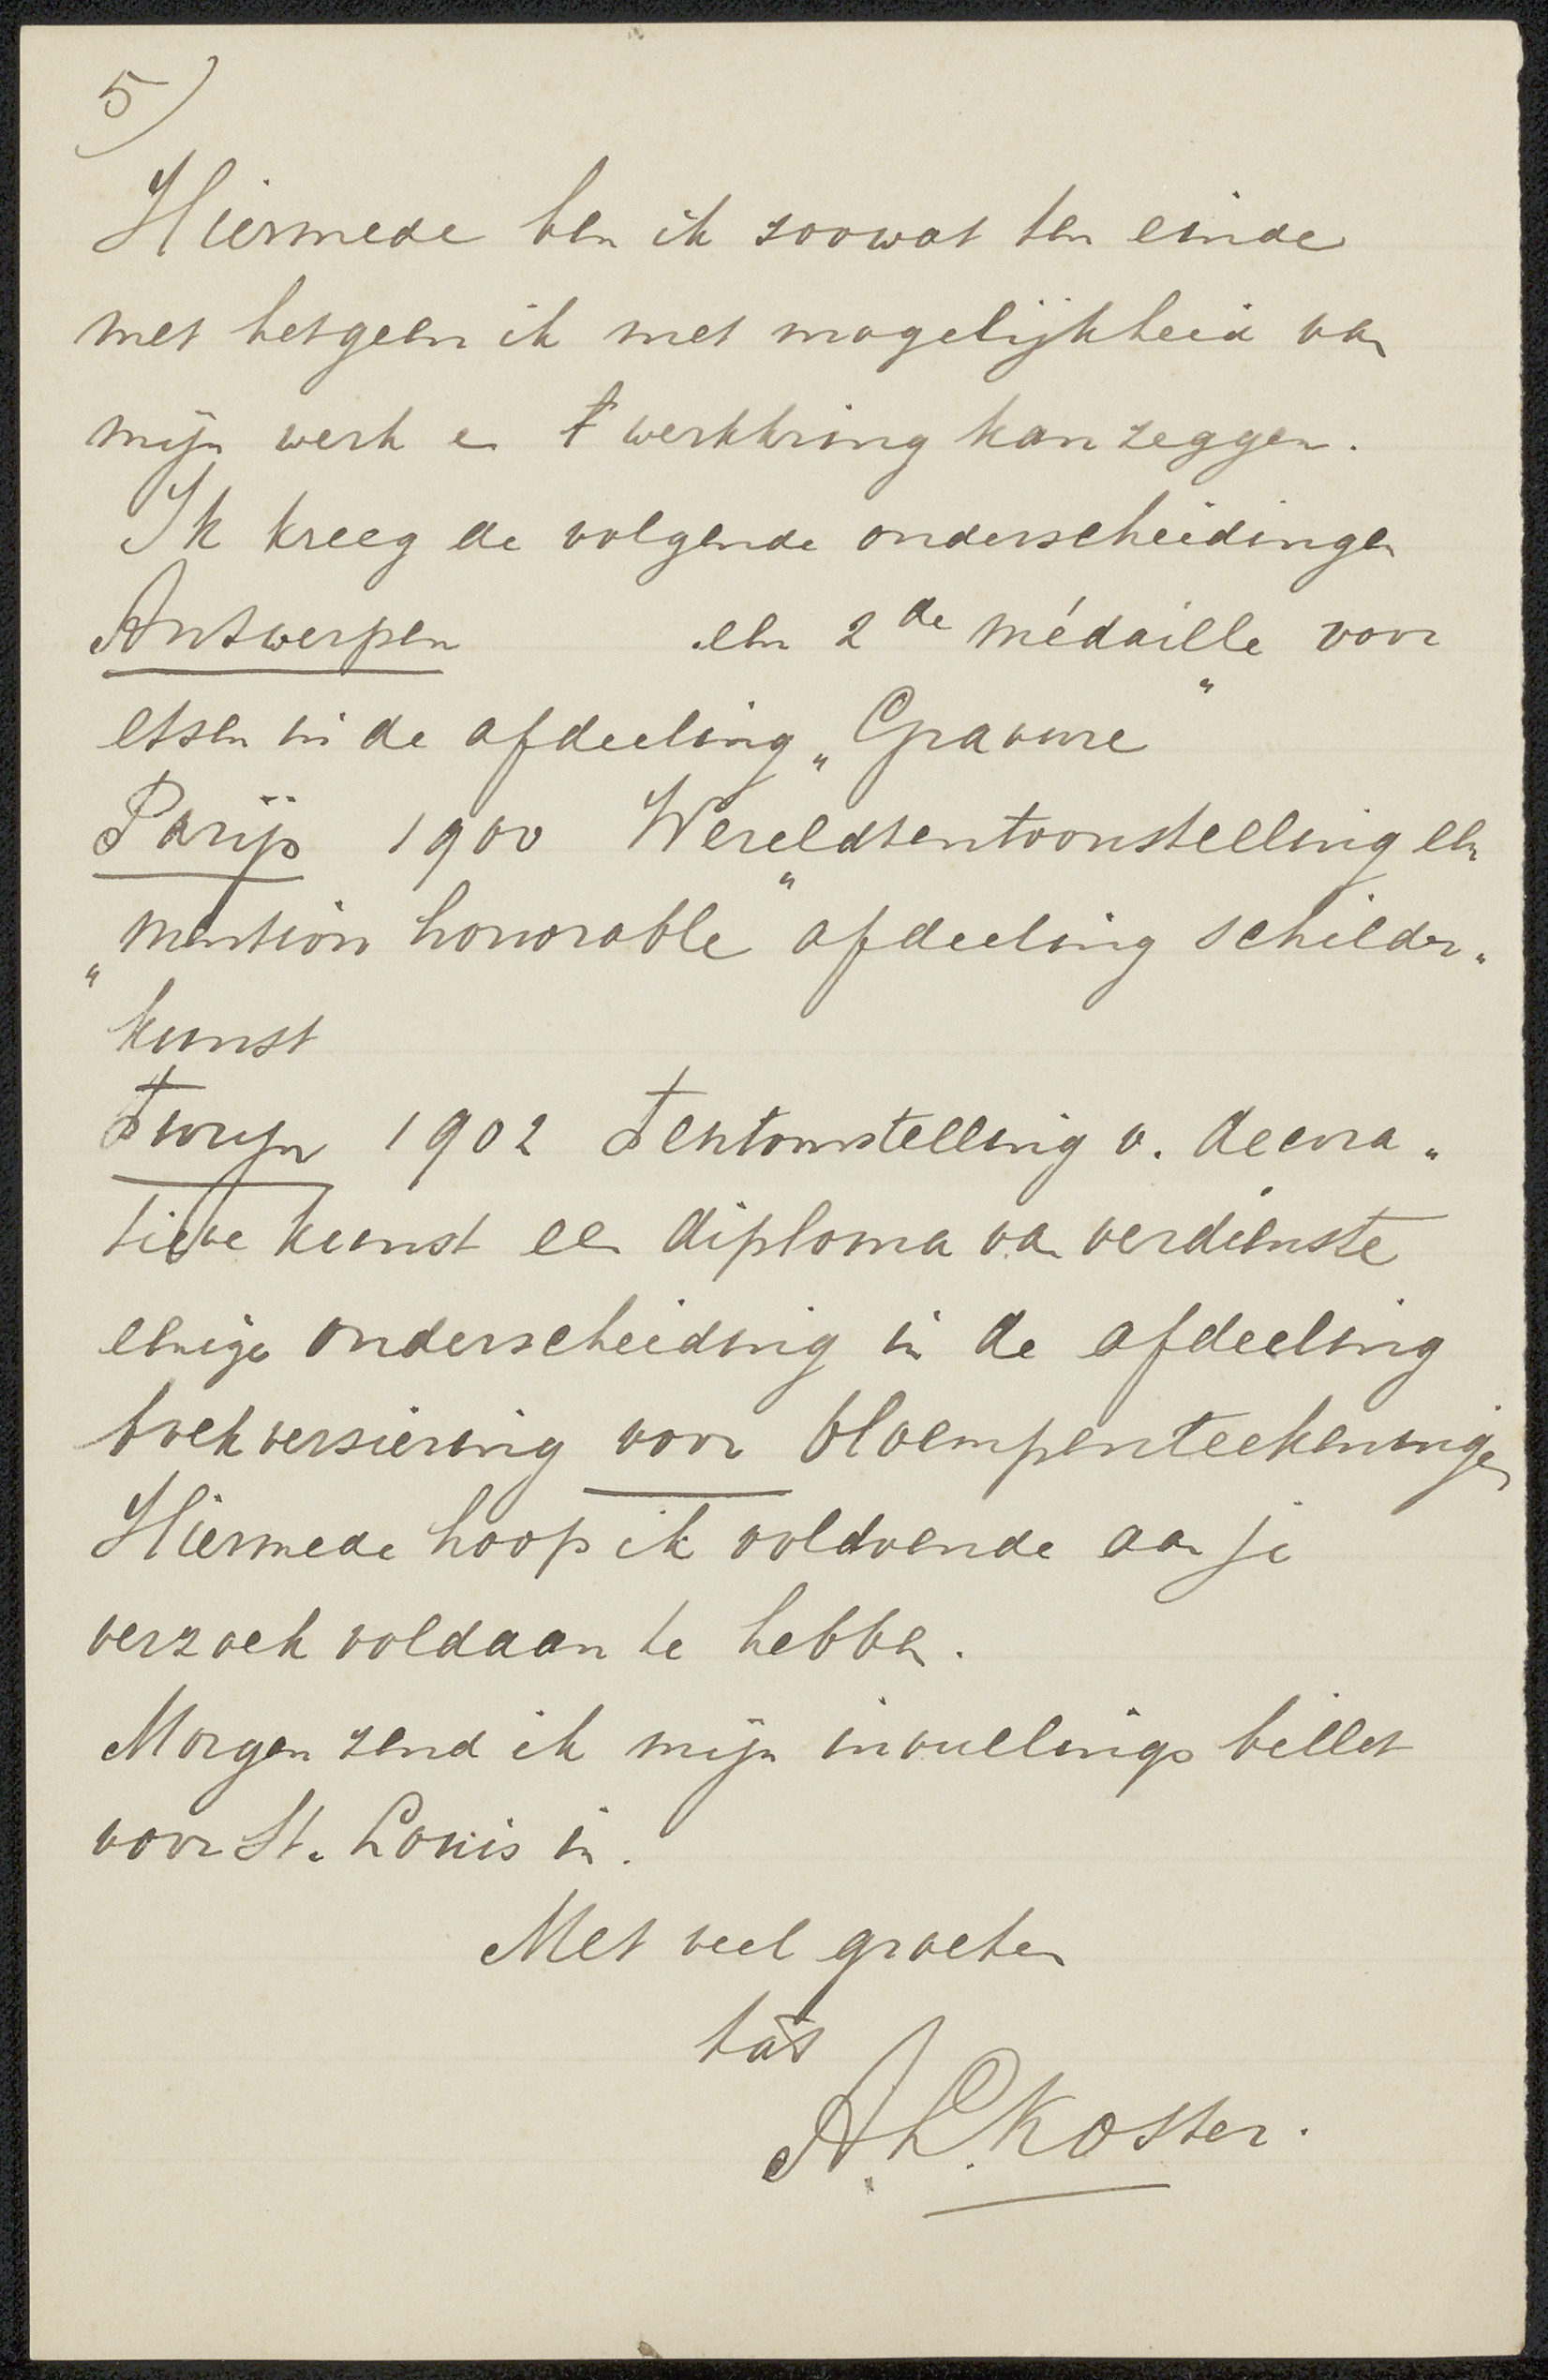 5)
Hiermede ben ik zoowat ten einde
met hetgeen ik met mogelijkheid van
mijn werk en werkkring kan zeggen.
Ik kreeg de volgende onderscheidingen
Antwerpen een 2de médaille voor
etsen in de afdeeling „Gravure"
Parijs 1900 Wereldtentoonstelling een
„mention honorable" afdeeling schilder„
kunst
Turijn 1902 Tentoonstelling v. decora„
tieve kunst een diploma van verdienste
eenige onderscheiding in de afdeeling
boekversiering voor bloempenteekeningen
Hiermede hoop ik voldoende aan je
verzoek voldaan te hebben.
Morgen zend ik mijn invullings billet
voor St. Louis in.
Met veel groeten
tàt
A.L. Koster.